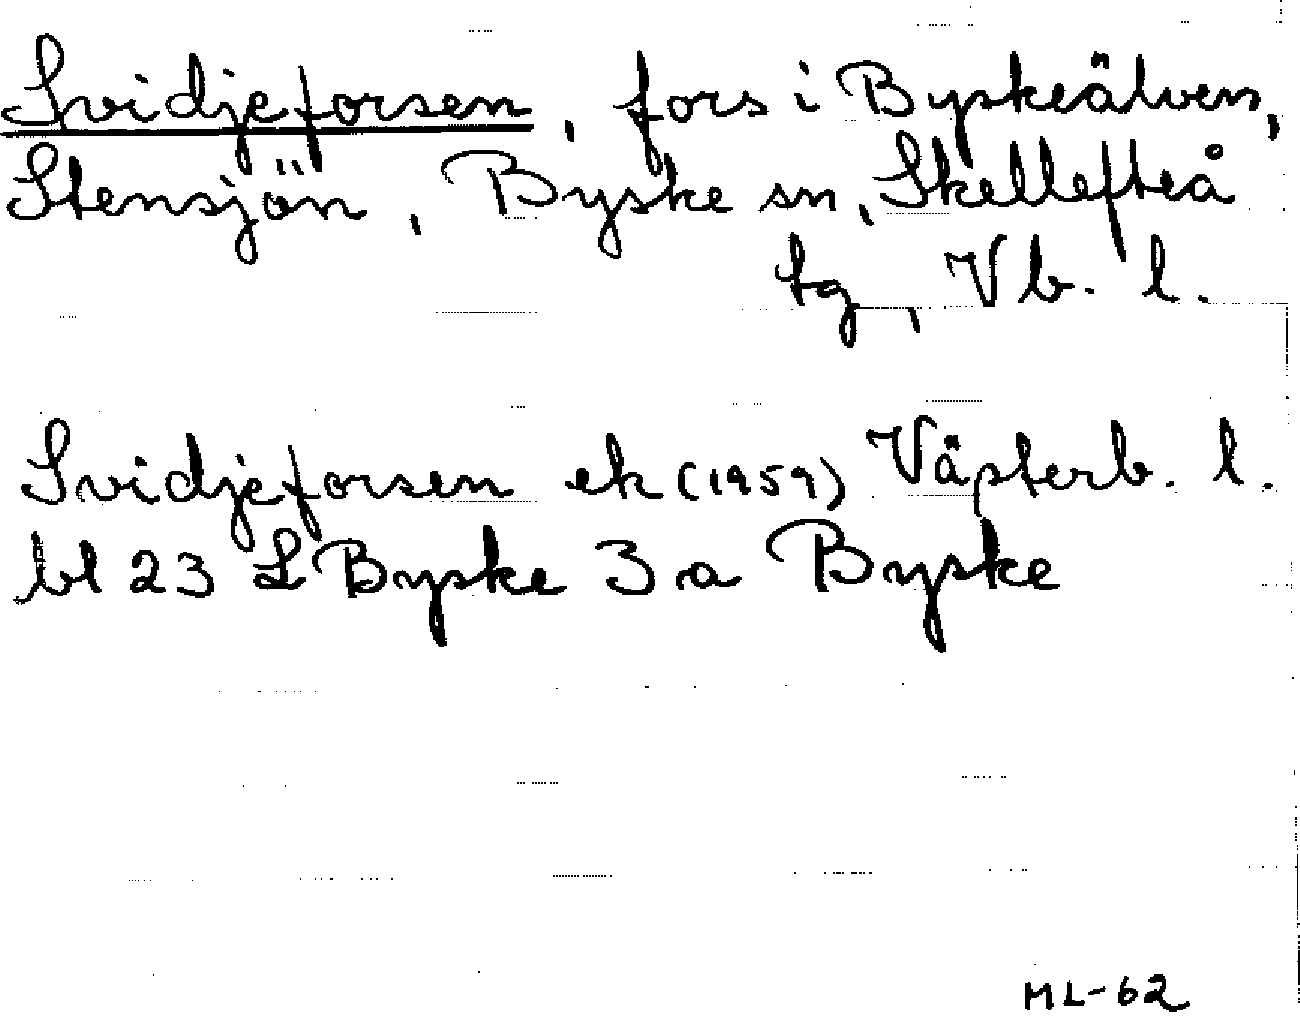 Svidjeforsen, fors i Byskeälven,
Stensjön, Byske sn, Skellefteå
tg, Vb. l.
Svidjeforsen ek (1959) Västerb. l.
bl 23 L Byske 3 a Byske
ML-62